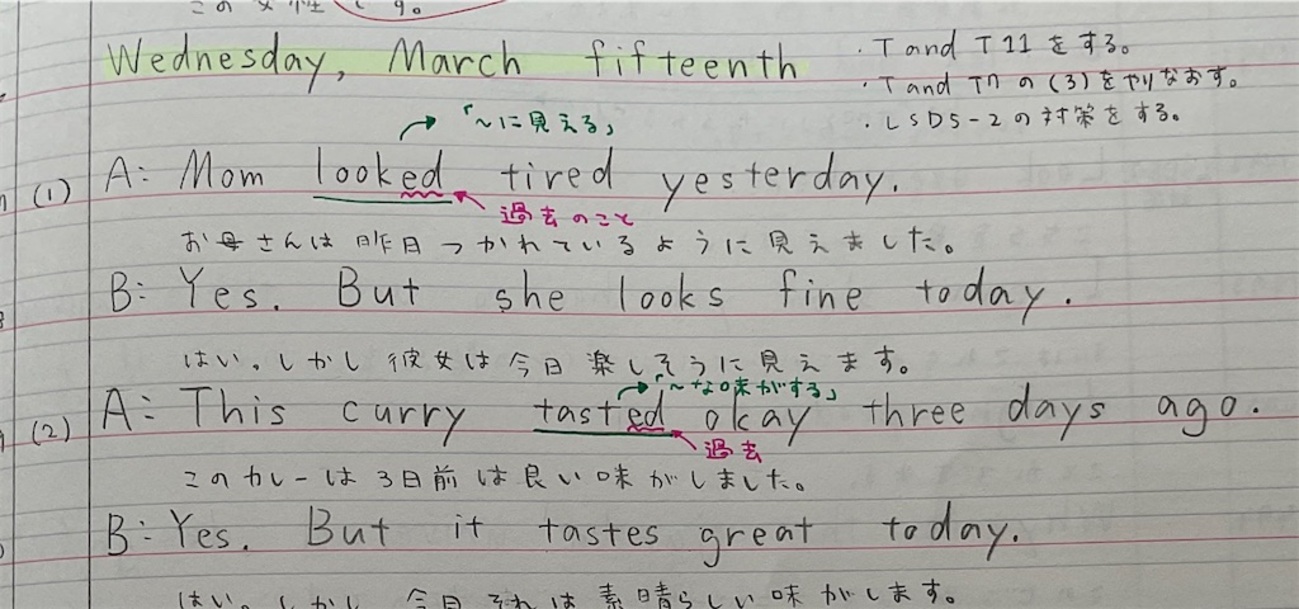 この女性です。
Wednesday, March fifteenth
・T and T 11 をする。
・T and T7 の (3) をやりなおす。
・LSD5-2の対策をする。
「~に見える」
(1) A: Mom looked tired yesterday.
過去のこと
お母さんは昨日つかれているように見えました。
B: Yes. But she looks fine today.
はい。しかし彼女は今日楽しそうに見えます。
「~な味がする」
(2) A: This curry tasted okay three days ago.
過去
このカレーは3日前は良い味がしました。
B: Yes. But it tastes great today.
はい。しかし今日それは素晴らしい味がします。